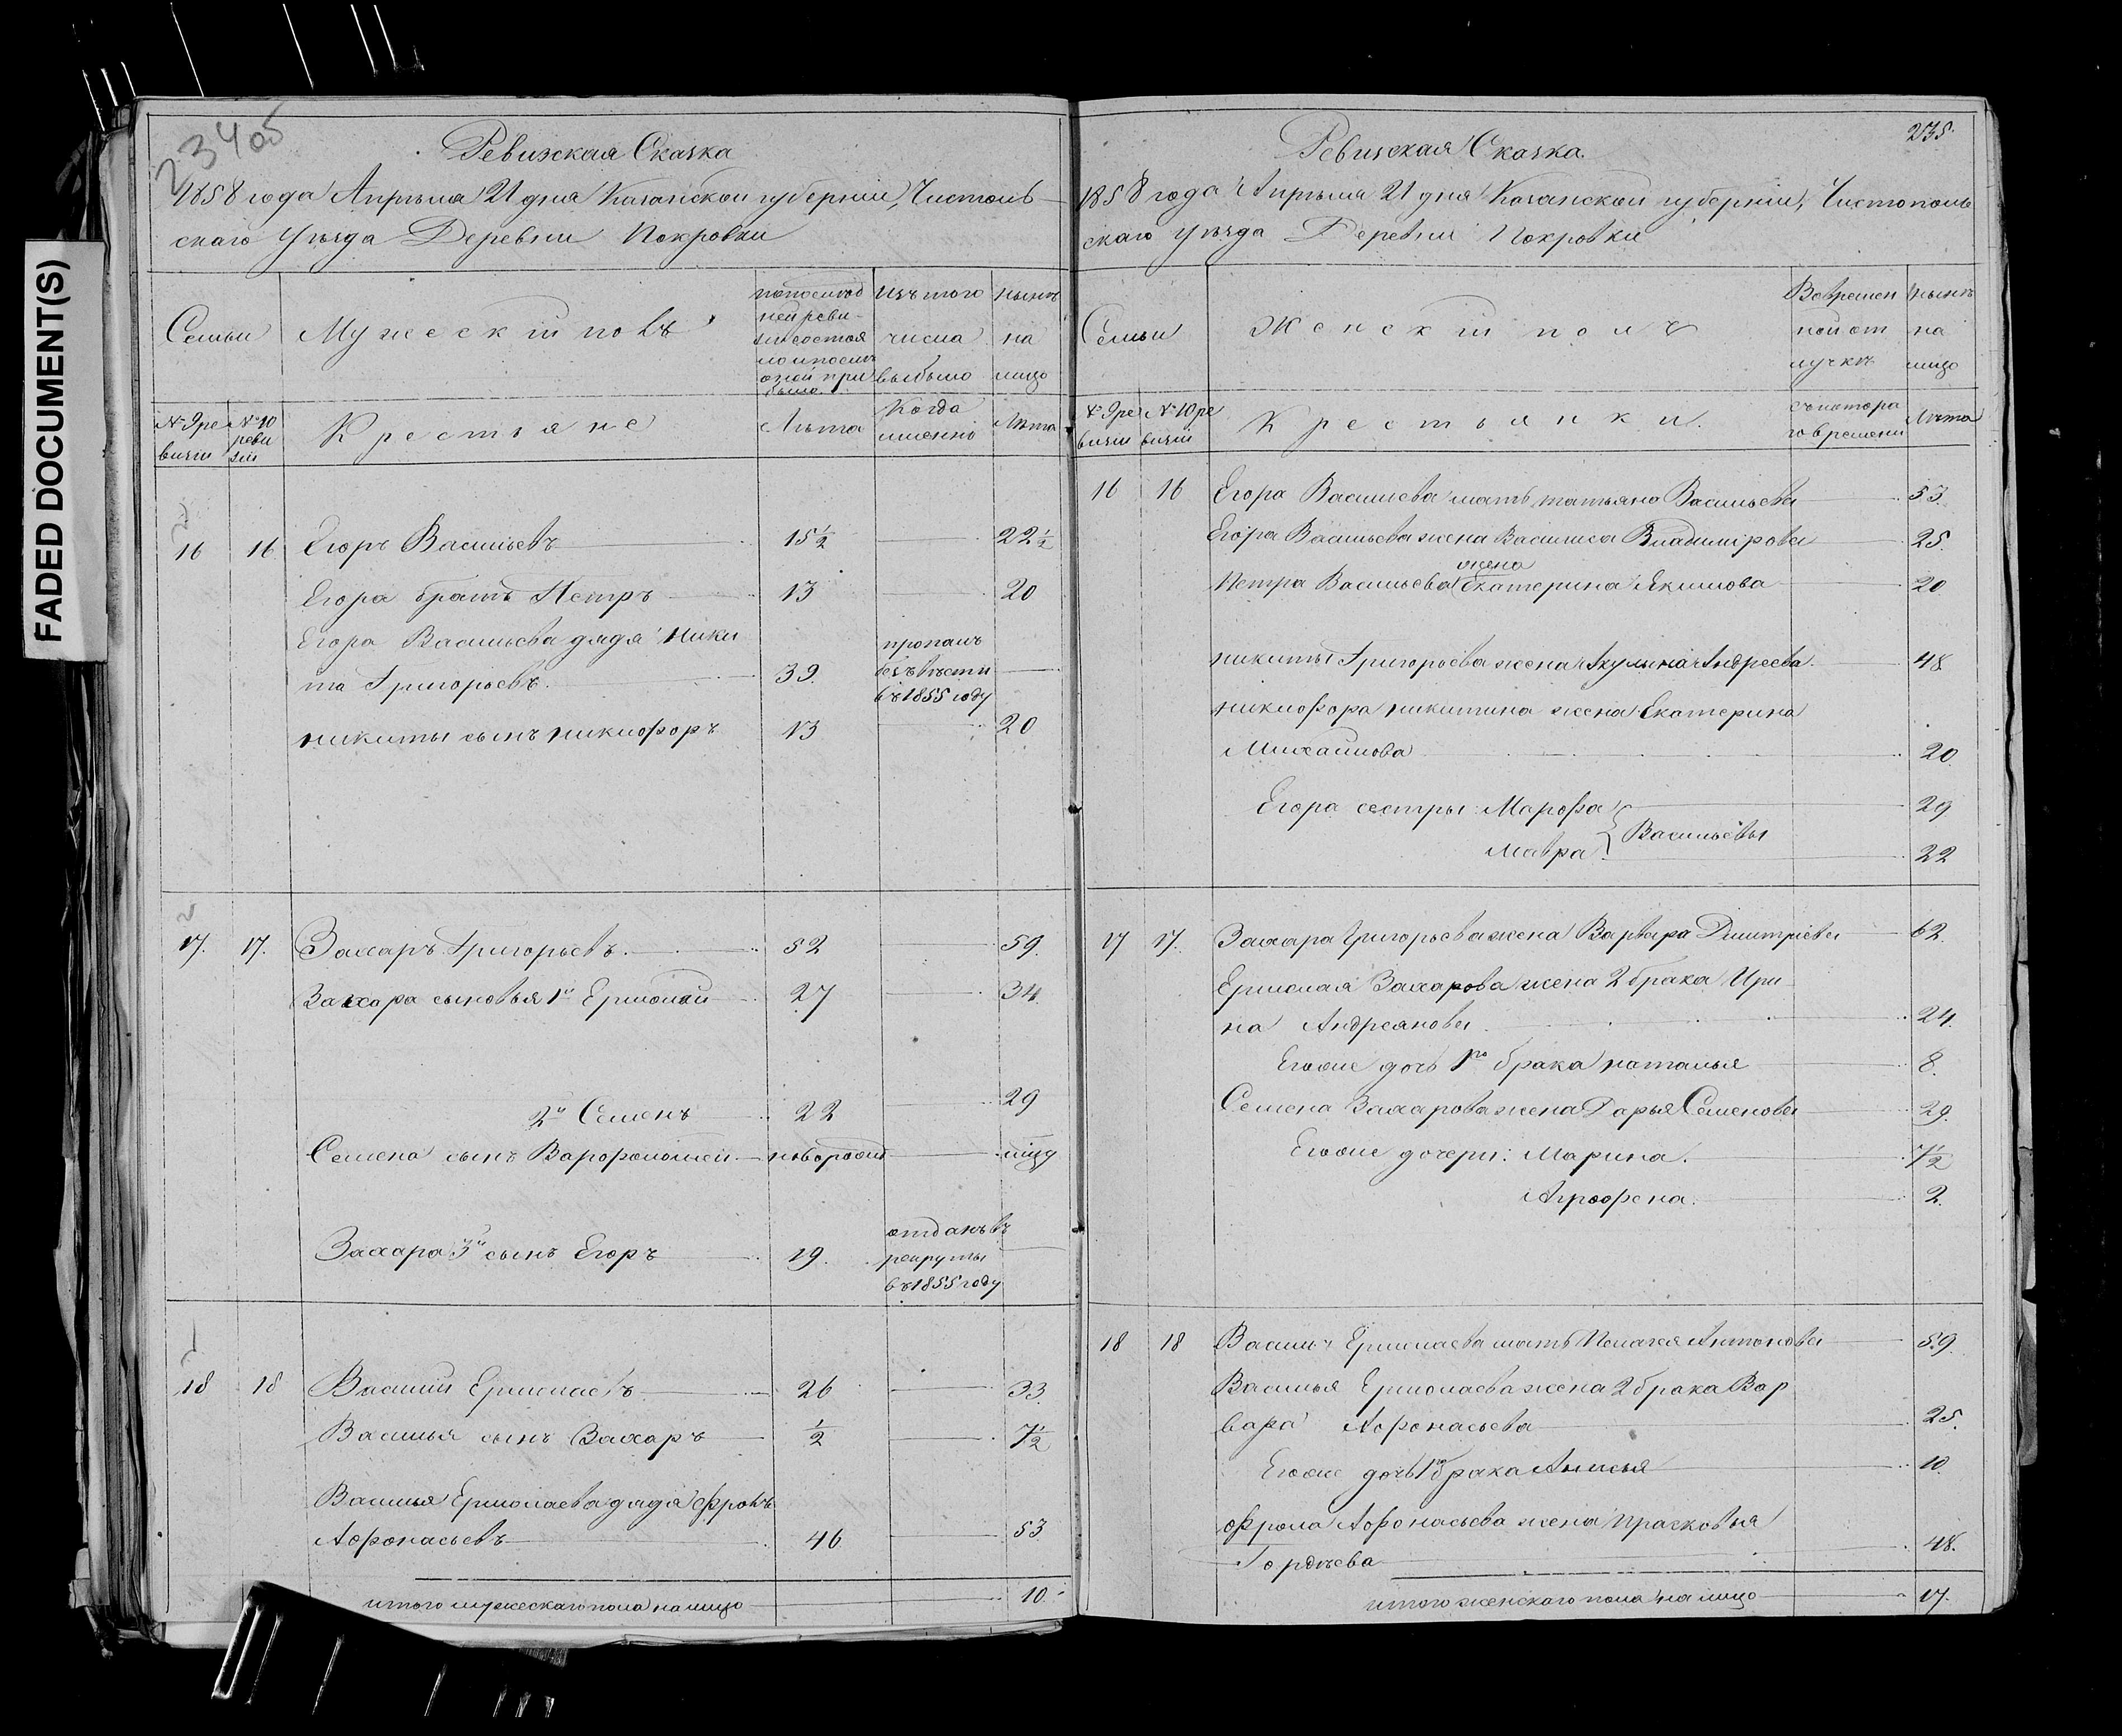 FADED DOCUMENT(S)
234об
Ревизская Сказка
1858 года Апрѣля 21 дня Казанской губерніи, Чистопль-
скаго Уѣзда Деревни Покровки
Семьи
Мужескій полъ
по послѣд
ней реви-
зіи состоя
ло и послѣ
оной при
было.
Изъ того
числа
выбыло
нынѣ
на
лицо
№ 9 ре
визіи
№ 10
реви
зіи
Крестьяне
Лѣта
Когда
именно
Лѣта
16 16 Егоръ Васильевъ 15½ 22½
Егора братъ Петръ 13 20
Егора Васильева дядя Ники
та Григорьевъ. 39. пропалъ
безъ вѣсти
въ 1855 году
Никиты сынъ Никифоръ 13 20
17. 17. Захаръ Григорьевъ. 52 59.
Захара сыновья 1й Ермолай 27 34.
2й Семенъ 22 29
Семена сынъ Варфоломей новорожд лицу
Захара 3й сынъ Егоръ 19. отданъ въ
рекруты
въ 1855 году
18 18 Василій Ермолаевъ 26 33.
Василья сынъ Захаръ ½ 7½
Василья Ермолаева дядя Фролъ
Афонасьевъ 46. 53.
итого мужескаго пола на лицо 10.
235.
Ревизская Сказка.
1858 года Апрѣля 21 дня Казанской губерніи, Чистополь
скаго уѣзда Деревни Покровки
Семьи
Женскій полъ
Вовремен
ной от
лучкѣ
Нынѣ
на
лицо
№ 9 ре
визіи
№ 10 ре
визіи
Крестьянки.
съ котора
го времени
Лѣта
16 16 Егора Василиева мать Татьяна Васильева 53.
Егора Васильева жена Василиса Владимірова 25.
жена
Петра Васильева Екатерина Якимова 20
Никиты Григорьева жена Акулина Андреева. 48
Никифора Никитина жена Екатерина
Михайлова 20.
Егора сестры: Марфа 29
Васильевы
Мавра 22
17 17. Захара Григорьева жена Варвара Дмитріева 62.
Ермолая Захарова жена 2 брака Ири
на Андреянова 24.
Егоже дочь 1го брака Наталья 8.
Семена Захарова жена Дарья Семенова 29.
Егоже дочери: Марина. 7½
Агрофена. 2.
18 18 Василья Ермолаева мать Пелагея Антонова 59.
Василья Ермолаева жена 2 брака Вар
вара Афонасьева 25.
Егоже дочь 1го брака Анисья 10.
Фрола Афонасьева жена Прасковья
Гордѣева 48.
итого женскаго пола на лицо 17.